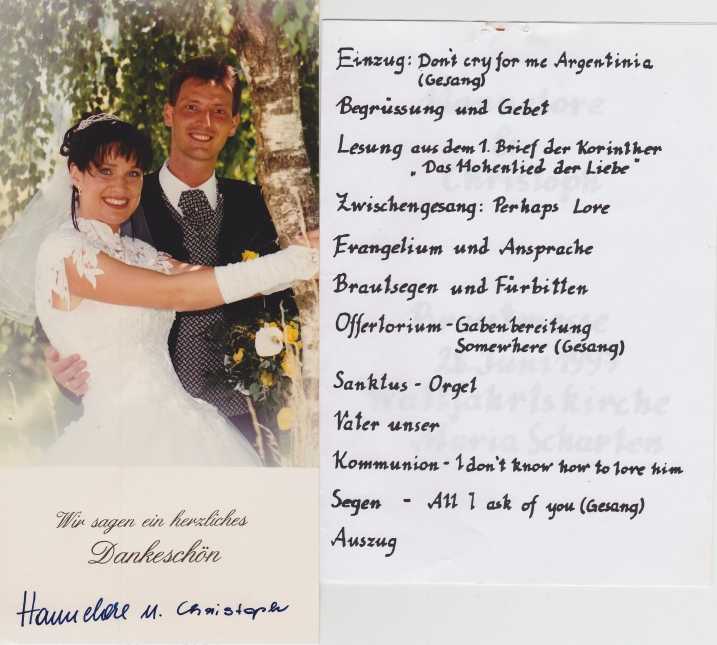 Wir sagen ein herzliches
Dankeschön
Hannelore u. Christoph
Einzug: Don't cry for me Argentinia
(Gesang)
Begrüssung und Gebet
Lesung aus dem 1. Brief der Korinther
„Das Hohenlied der Liebe"
Zwischengesang: Perhaps Love
Evangelium und Ansprache
Brautsegen und Fürbitten
Offertorium - Gabenbereitung
Somewhere (Gesang)
Sanktus - Orgel
Vater unser
Kommunion - I don't know how to love him
Segen - All I ask of you (Gesang)
Auszug
Hannelore
Christoph
Brautmesse
Juni 199
Wallfahrtskirche
Maria Scharten